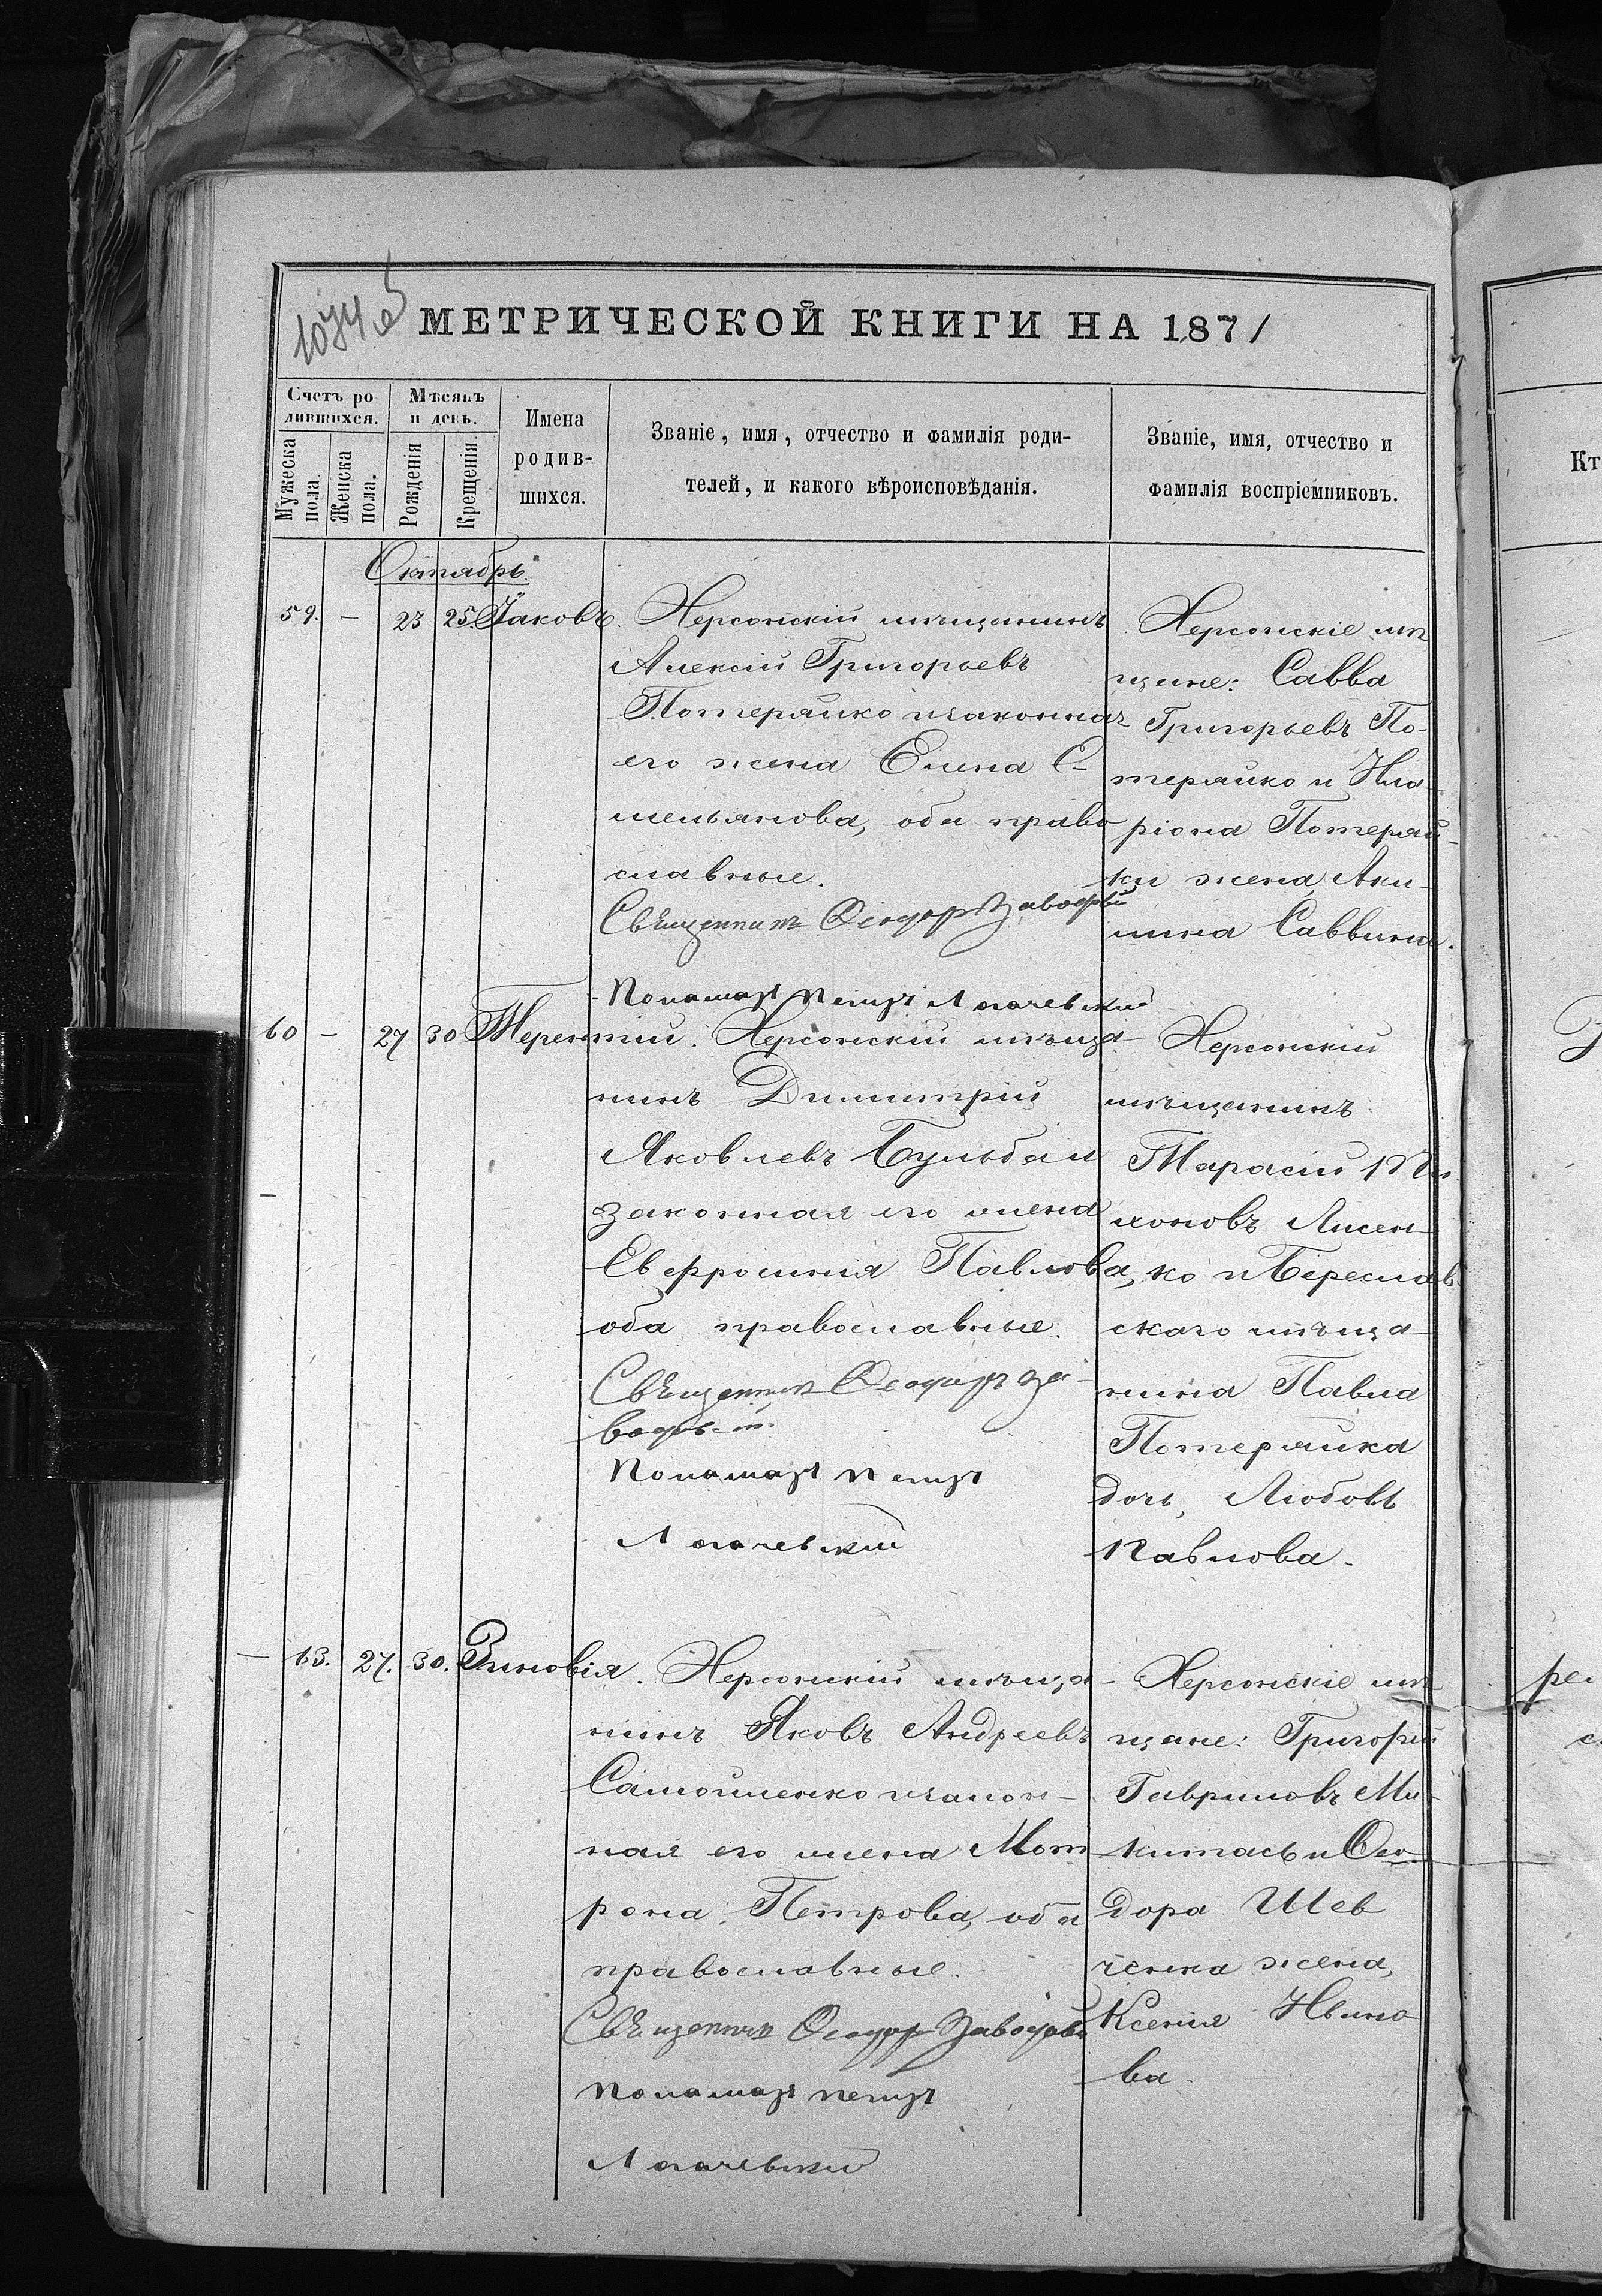 МЕТРИЧЕСКОЙ КНИГИ НА 1871
Счетъ ро
дившихся.
Мѣсяцъ
и день.
Мужеска
пола.
Женска
пола.
Рожденія
Крещенія.
Имена
родив-
шихся.
Званіе, имя, отчество и фамилія роди-
телей, и какого вѣроисповѣданія.
Званіе, имя, отчество и
фамилія воспріемниковъ.
Кт
Октябрь
59. — 23 25. Іаковъ.
Херсонскій мѣщанинъ
Алексій Григорьевъ
Потеряйко и законная
его жена Елена Е-
мельянова, оба право
славные.
Священникъ Ѳеодоръ
Пономарь Петръ Логачевскій
Херсонскіе мѣ
щане: Савва
Григорьевъ По-
теряйко и Ила-
ріона Потеряй-
ки жена Аки-
лина Саввина.
60 — 27 30 Терентій.
Херсонскій мѣща-
нинъ Димитрій
Яковлевъ Бульба и
законная его жена
Евфросинія Павлова,
оба православные.
Священникъ Ѳеодоръ За-
Пономарь Петръ
Логачевскій
Херсонскій
мѣщанинъ
Тарасій
хоновъ Лисен-
ко и Береслав
скаго мѣща-
нина Павла
Потеряйка
дочь, Любовь
Павлова.
— 63. 27. 30. Зиновія.
Херсонскій мѣща-
нинъ Яковъ Андреевъ
Самойленко и закон-
ная его жена Мат
рона Петрова, оба
православные.
Священникъ Ѳеодоръ
Пономарь Петръ
Логачевскій
Херсонскіе мѣ
щане: Григорій
Гавриловъ Ми-
китась и Ѳео-
дора Шев
ченка жена,
Ксенія Ивано-
ва.